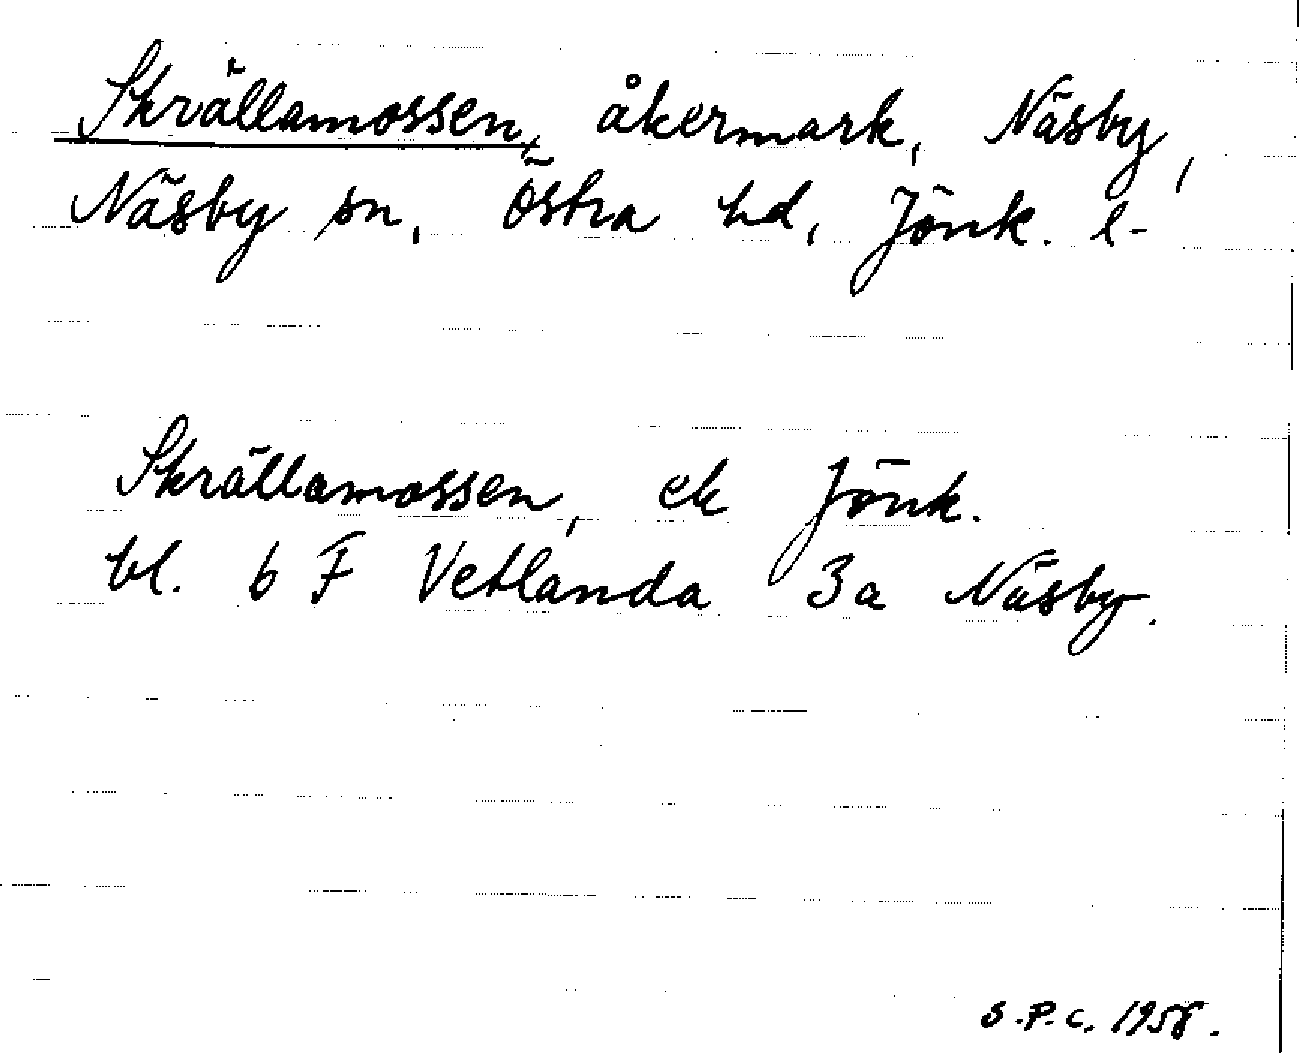 Skrällamossen, åkermark, Näsby,
Näsby sn, Östra hd, Jönk. l-
Skrällamossen, ek Jönk.
bl. 6 F Vetlanda 3a Näsby.
S.P.C. 1958.